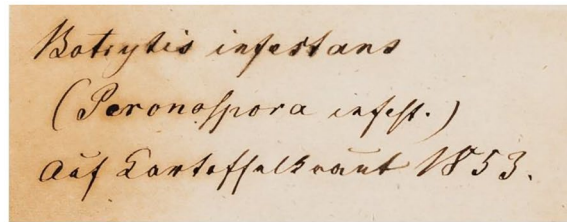 Botrytis infestans
(Peronospora infest.)
Auf Kartoffelkraut 1853.